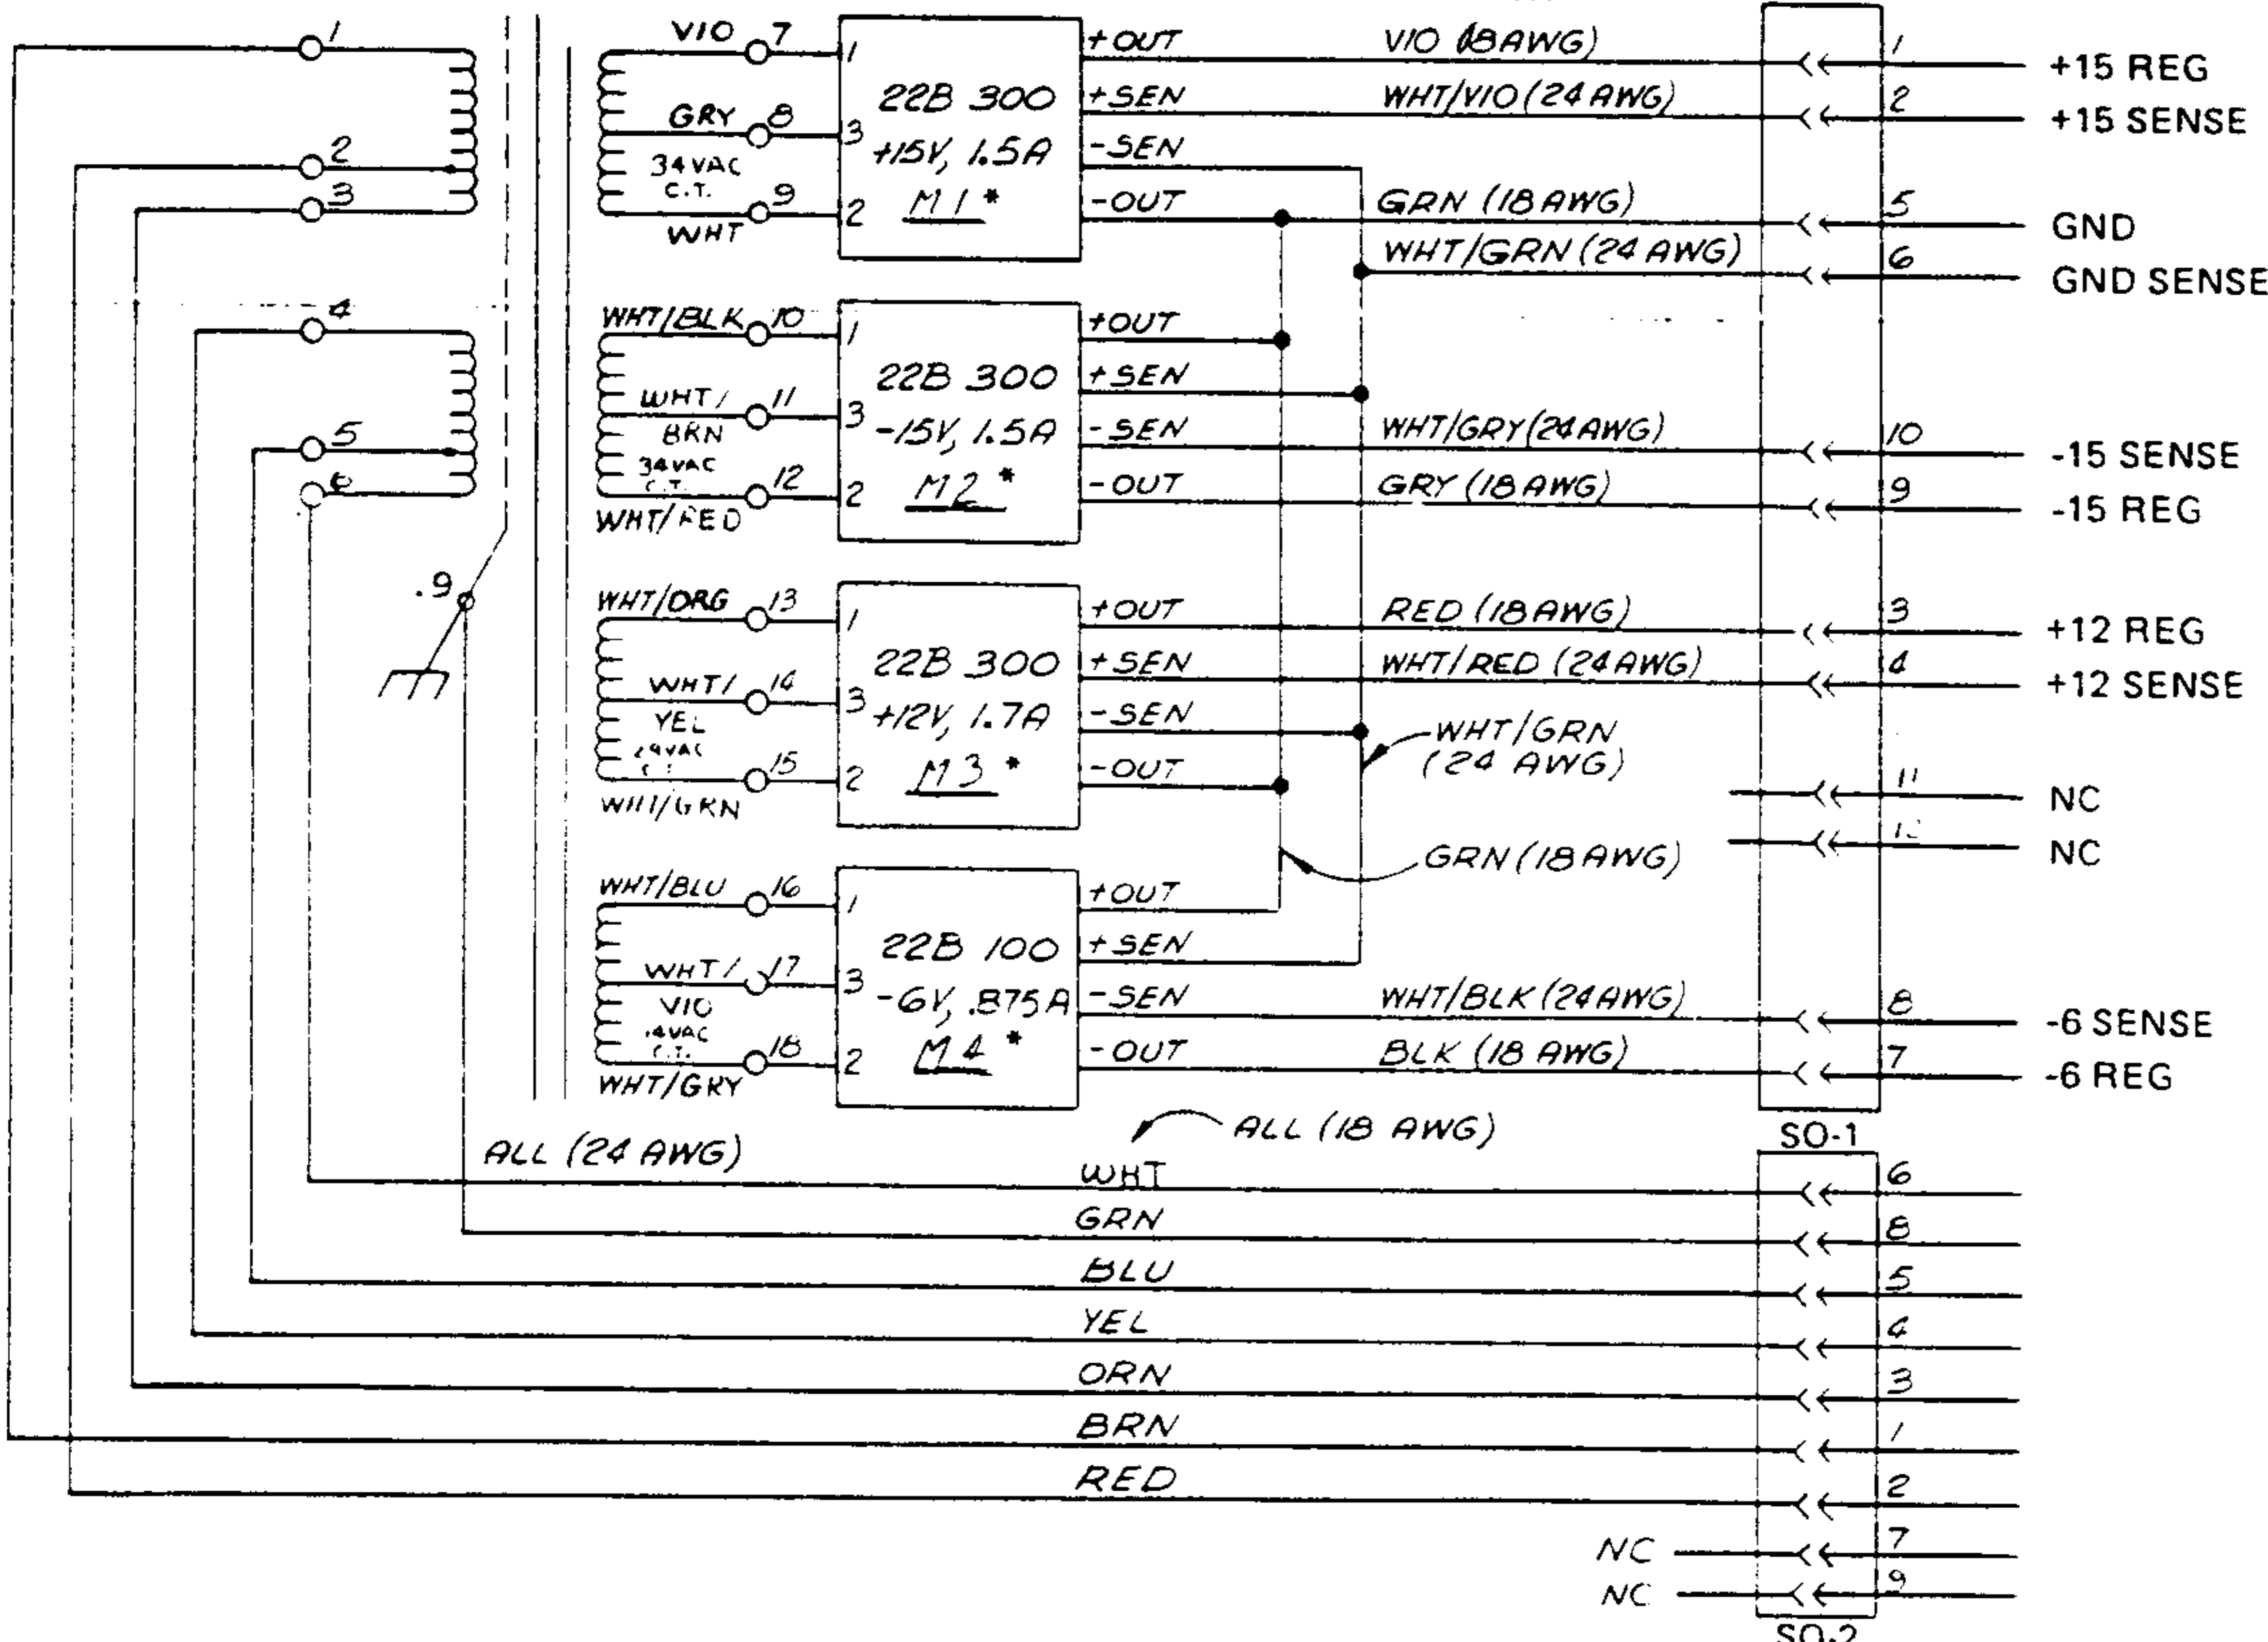 1
2
3
4
5
6
.9
VIO 7
GRY 8
34VAC
C.T.
9
WHT
1
3
2
22B 300
+15V, 1.5A
M1*
+OUT
+SEN
-SEN
-OUT
VIO (18AWG)
WHT/VIO (24 AWG)
GRN (18 AWG)
WHT/GRN (24 AWG)
1 +15 REG
2 +15 SENSE
5 GND
6 GND SENSE
WHT/BLK 10
WHT/ 11
BRN
34VAC
C.T.
12
WHT/RED
1
3
2
22B 300
-15V, 1.5A
M2*
+OUT
+SEN
-SEN
-OUT
WHT/GRY (24AWG)
GRY (18 AWG)
10 -15 SENSE
9 -15 REG
WHT/ORG 13
WHT/ 14
YEL
15
WHT/GRN
1
3
2
22B 300
+12V, 1.7A
M3*
+OUT
+SEN
-SEN
-OUT
RED (18AWG)
WHT/RED (24AWG)
WHT/GRN
(24 AWG)
GRN (18 AWG)
3 +12 REG
4 +12 SENSE
11 NC
NC
WHT/BLU 16
WHT/ 17
VIO
18
WHT/GRY
1
3
2
22B 100
-6V, .875A
M4*
+OUT
+SEN
-SEN
-OUT
WHT/BLK (24AWG)
BLK (18 AWG)
8 -6 SENSE
7 -6 REG
SO-1
ALL (24 AWG)
ALL (18 AWG)
WHT 6
GRN 8
BLU 5
YEL 4
ORN 3
BRN 1
RED 2
NC 7
NC 9
SO-2